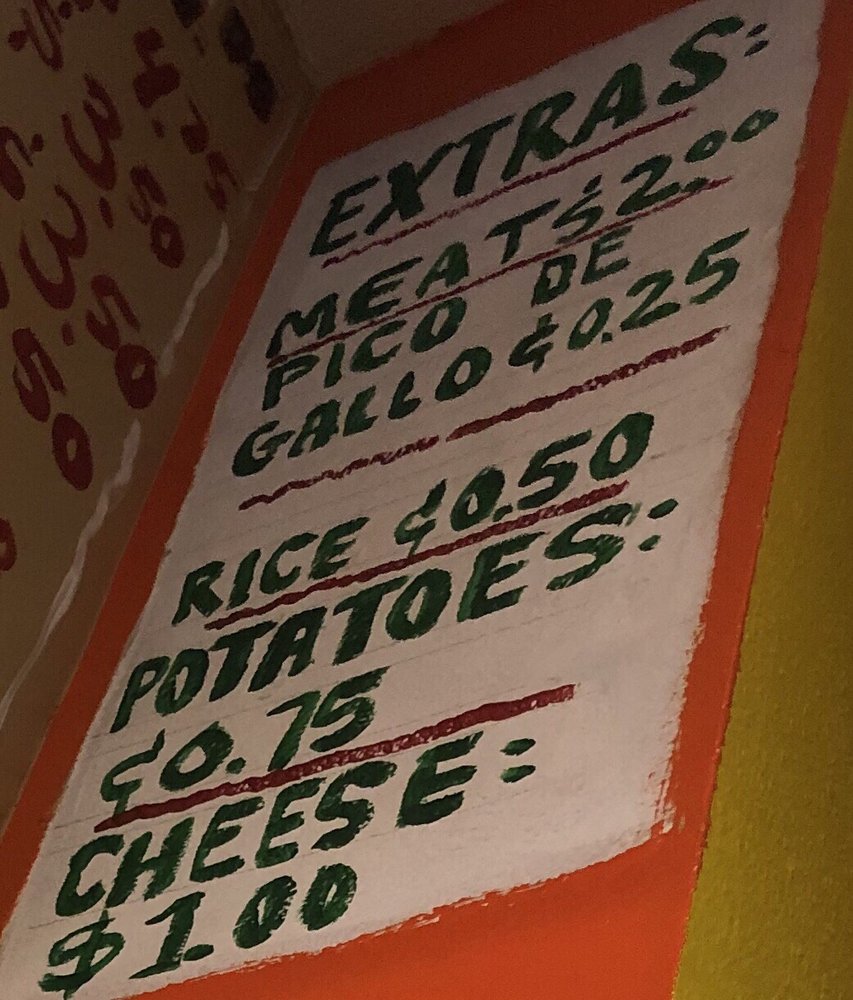 EXTRAS:
MEAT $2.00
PICO DE
GALLO ¢0.25
RICE ¢0.50
POTATOES:
¢0.75
CHEESE:
$1.00
4.75
3.50
3.50